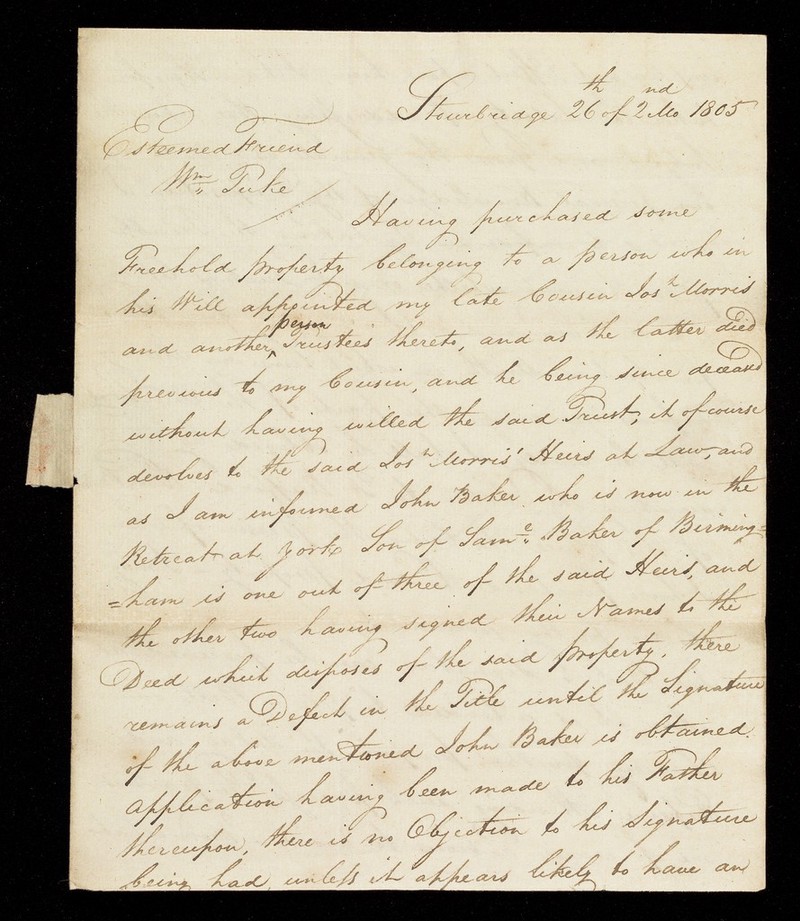 Stourbridge 26th of 2nd Mo 1805
Esteemed Friend
Wm Tuke
Having purchased some
Freehold property belonging to a person who in
his Will appointed my late Cousin Josh Morris
and another person Trustees thereto, and as the latter died
previous to my Cousin, and he being since deceased
without having willed the said Trust, it of course
devolves to the said Josh Morris' Heirs at Law, and
as I am informed John Baker who is now in the
Retreat at York Son of Saml Baker of Birming=
=ham is one out of three of the said Heirs, and
the other two having signed their Names to the
Deed which disposes of the said property, there
remains a Defect in the Title until the Signature
of the above mentioned John Baker is obtained.
Application having been made to his Father
thereupon, there is no Objection to his Signature
being had, unless it appears likely to have an